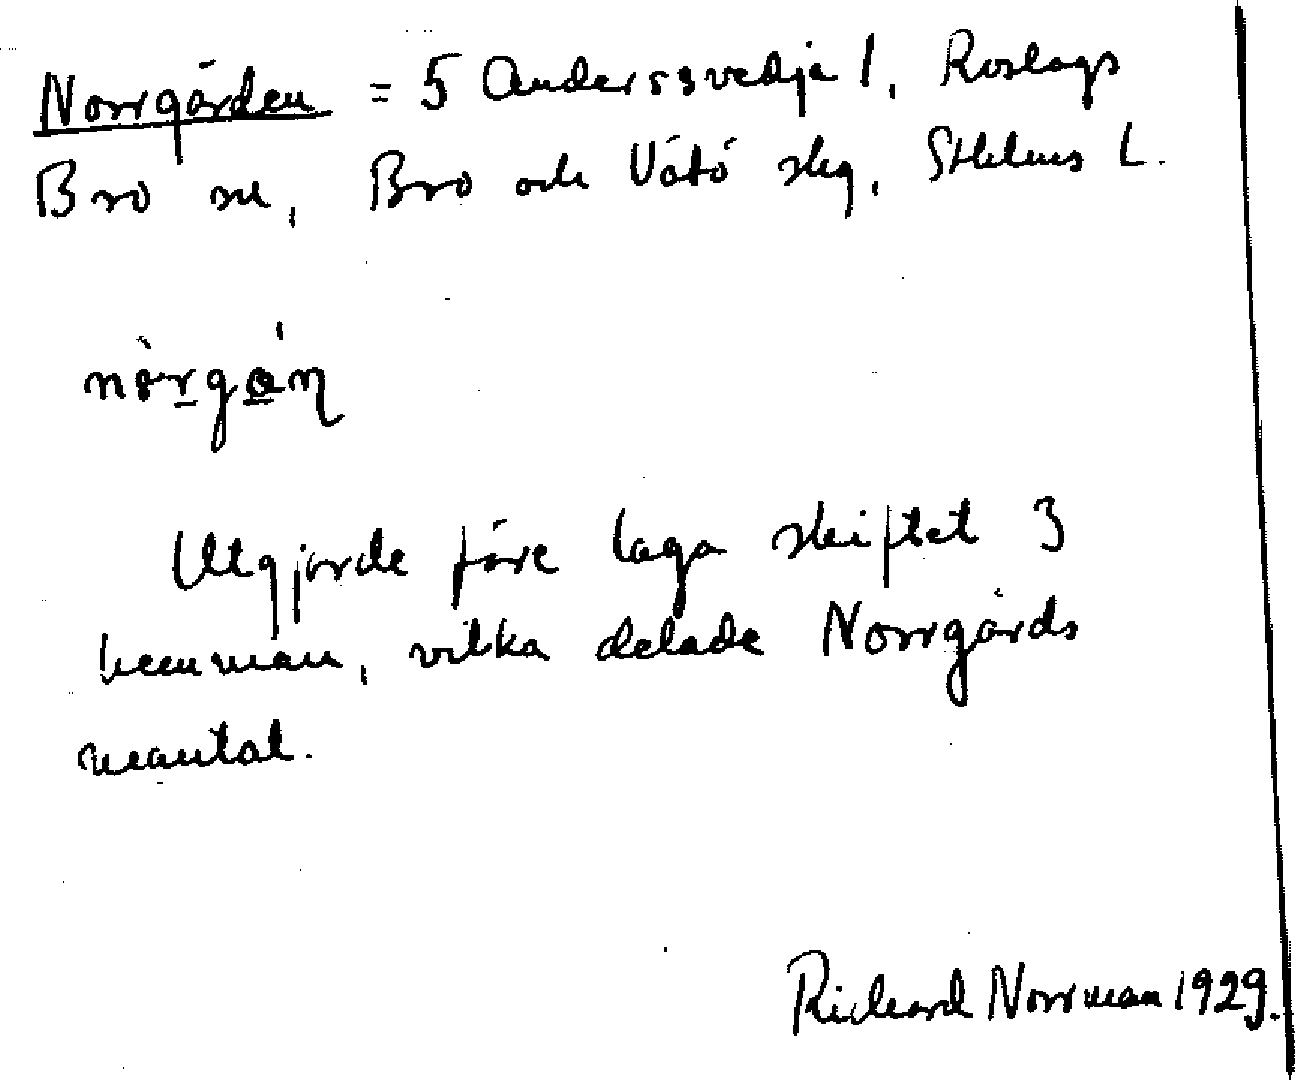 Norrgården = 5 Anderssvedja 1, Roslags
Bro sn, Bro och Vätö skg, Sthlms L.
Utgjorde före laga skiftet 3
hemman, vilka delade Norrgårds
mantal.
Richard Norrman 1929.